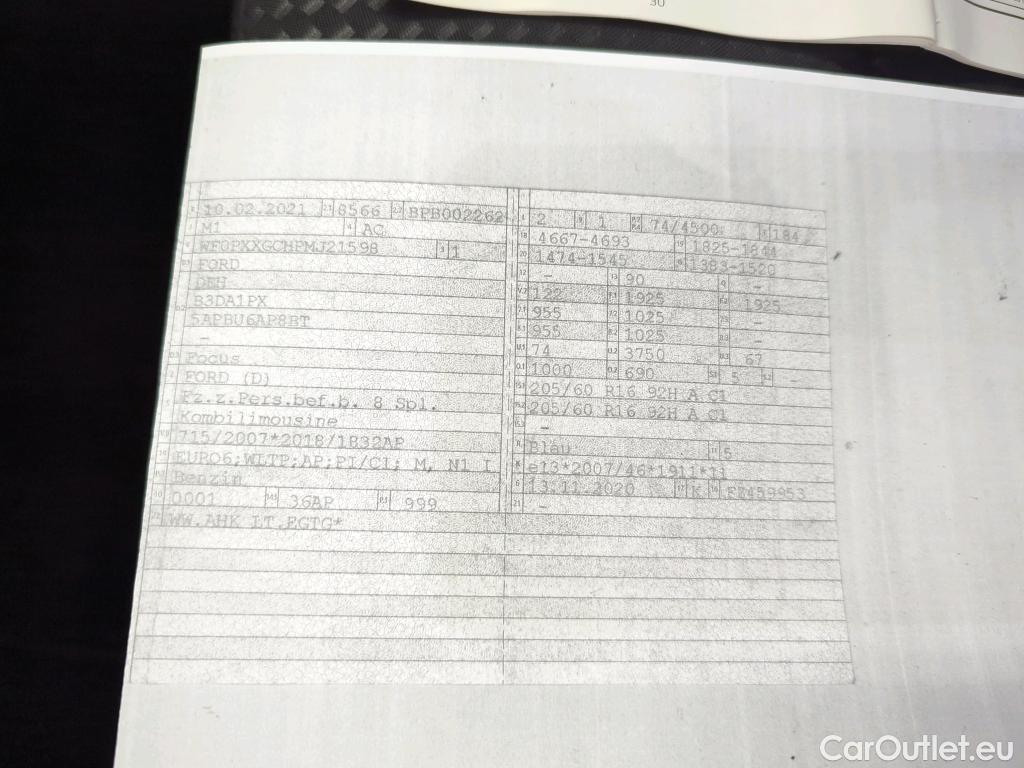 30
10.02.2021 8566 BPB002262
M1 AC
WF0PXXGCHPMJ21598 1
FORD
DEH
B3DA1PX
5APBU6AP8BT
-
Focus
FORD (D)
Fz.z.Pers.bef.b. 8 Spl.
Kombilimousine
715/2007*2018/1832AP
EURO6;WLTP;AP;PI/CI; M, N1 I
Benzin
0001 36AP 999
WW.AHK LT.EGTG*
2 1 74/4500 184
4667-4693 1825-1844
1474-1545 1383-1520
- 90 -
122 1925 1925
955 1025 -
955 1025 -
74 3750 67
1000 690 5 -
205/60 R16 92H A C1
205/60 R16 92H A C1
-
Blau 5
e13*2007/46*1911*11
13.11.2020 K
-
CarOutlet.eu